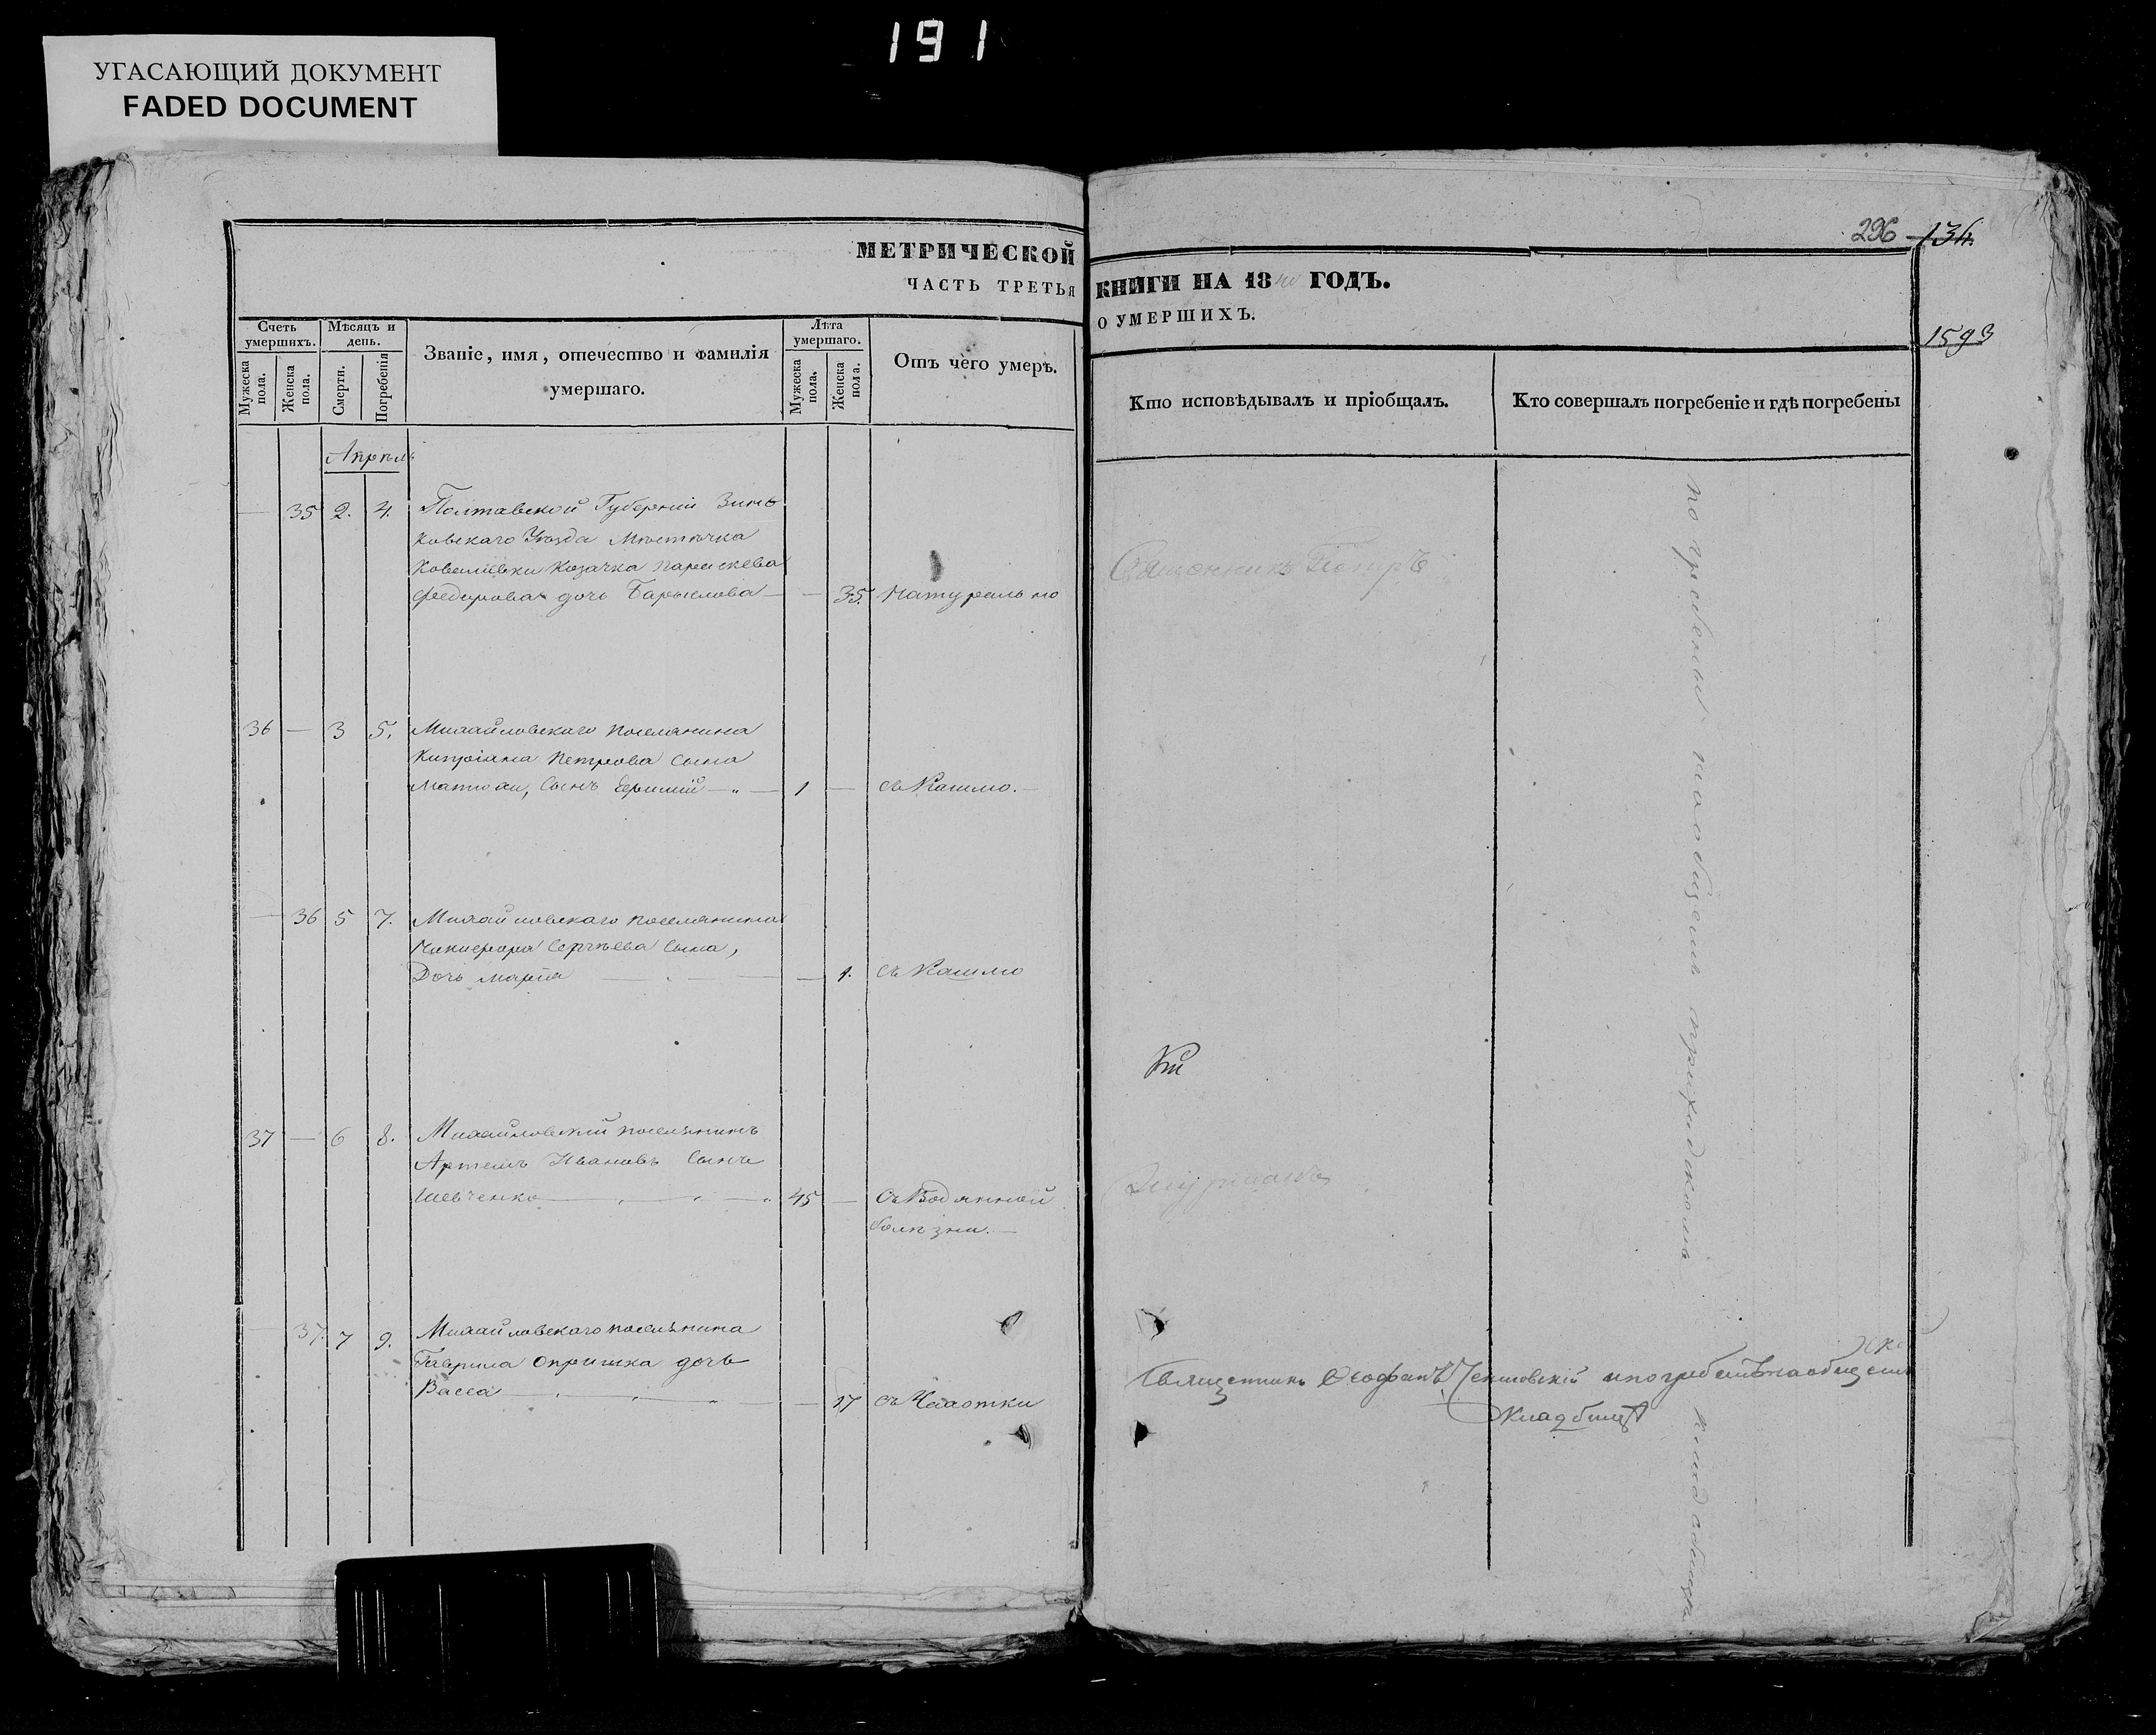 191
УГАСАЮЩИЙ ДОКУМЕНТ
FADED DOCUMENT
296 134
МЕТРИЧЕСКОЙ КНИГИ НА 18 ГОДЪ.
ЧАСТЬ ТРЕТЬЯ О УМЕРШИХЪ.
1593
Счетъ умершихъ.
Мужеска пола.
Женска пола.
Мѣсяцъ и день.
Смерти.
Погребенія
Званіе, имя, отечество и фамилія
умершаго.
Лѣта умершаго.
Мужеска пола.
Женска пола.
Отъ чего умеръ.
Кто исповѣдывалъ и пріобщалъ.
Кто совершалъ погребеніе и гдѣ погребены
Апрѣль
— 35 2. 4. Полтавской Губерніи Зинь
ковскаго Уѣзда Мѣстечка
Ковалиівки Козачка Параскева
Федорова дочь — — 35. Натурально
Священникъ Петръ
36 — 3 5. Михайловскаго поселянина
Кипріана Петрова сына
сынъ — „ — 1 — съ Кашлю. —
— 36 5 7. Михайловскаго поселянина
Никифора Сергѣева сына,
Дочь Марія — — 1. съ Кашлю
37 — 6 8. Михайловскій поселянинъ
Артемъ Ивановъ сынъ
Шевченко — 45 — съ Водянной
болѣзни. —
— 37. 7 9. Михайловскаго поселянина
Гаврила Опришка дочь
Васса — 17 съ Чахотки
Священникъ Феофанъ и погребенъ на общемъ
Кладбищѣ
погребены на общемъ приходскомъ
кладбищѣ